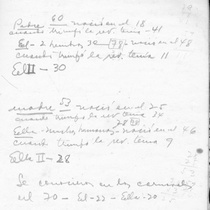 Padre 60 nació en el 18
cuando triunfó la rev. tenía - 41
El - 2 hombres 30 (78) nació en el 48
cuando triunfó la rev. tenía 11
El II - 30
madre 53 nació en el 25
cuando triunfo la rev. tenía 34
28
Ella - nació en el 46
la rev. tenía 9
Ella II - 28
Se conocieron en los carnavales
el 70 - El - 22 - Ella - 20